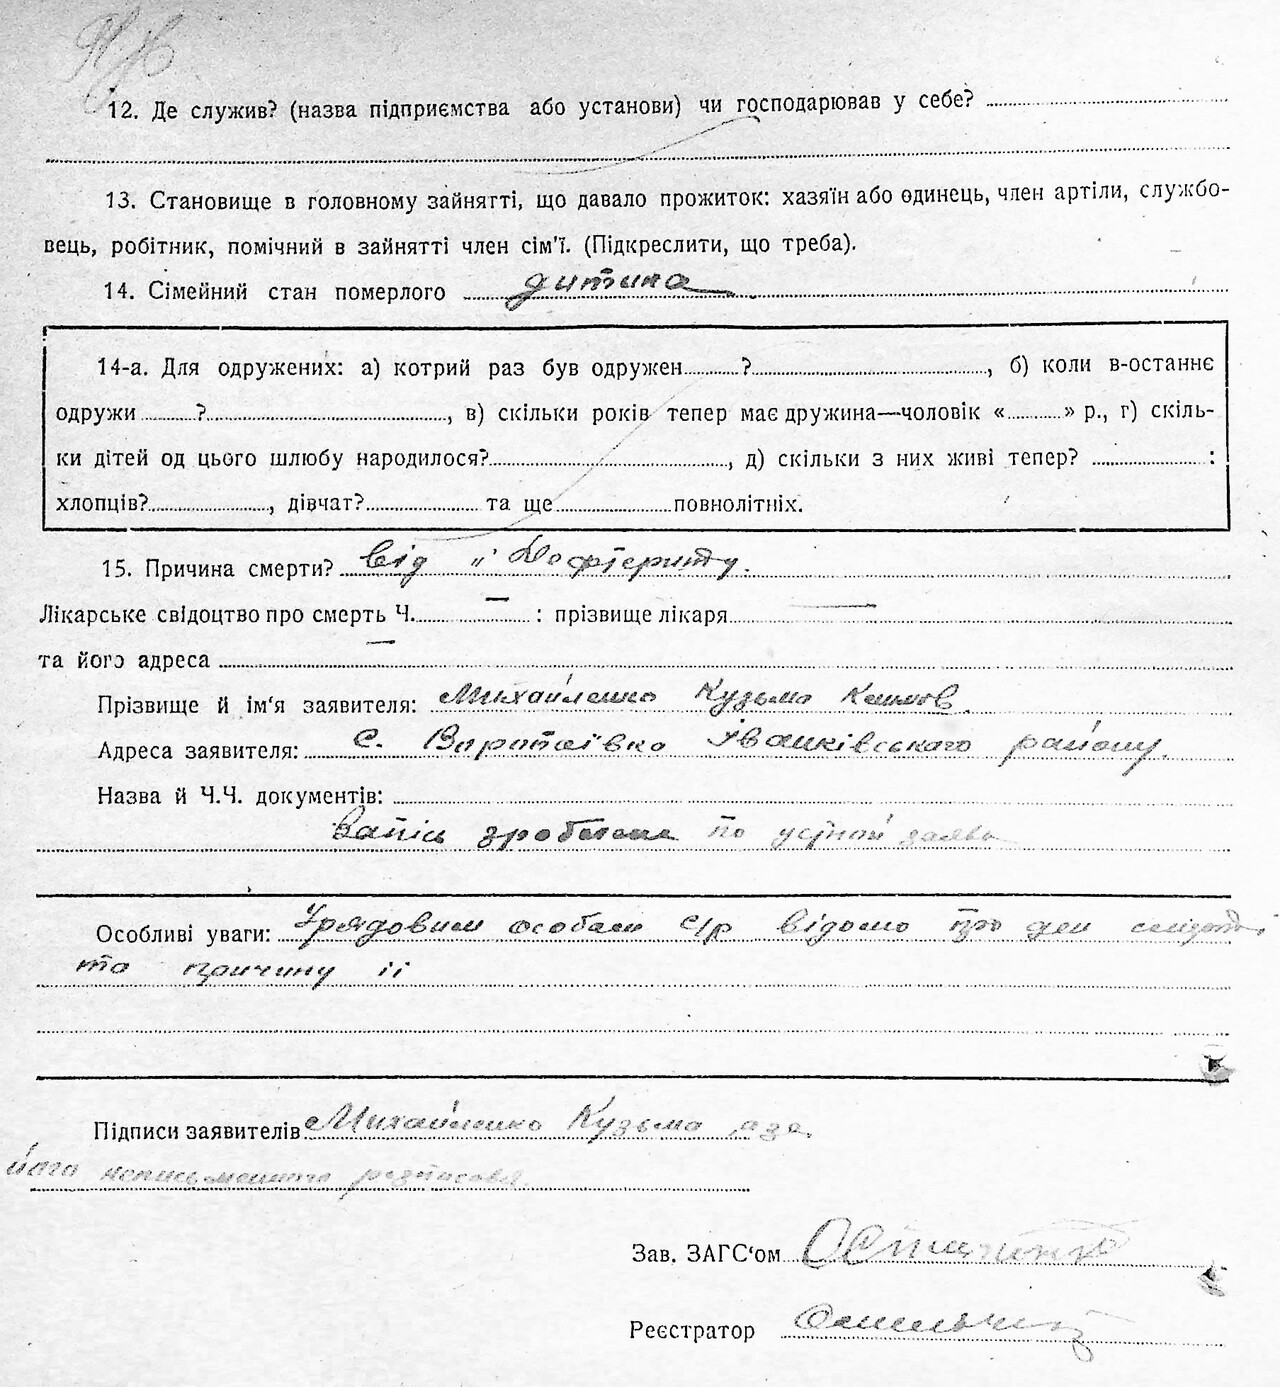 12. Де служив? (назва підприємства або установи) чи господарював у себе?
13. Становище в головному зайнятті, що давало прожиток: хазяїн або одинець, член артіли, службо-
вець, робітник, помічний в зайнятті член сім'ї. (Підкреслити, що треба).
14. Сімейний стан померлого дитина
14-а. Для одружених: а) котрий раз був одружен ? , б) коли в-останнє
одружи ? , в) скільки років тепер має дружина—чоловік « » р., г) скіль-
ки дітей од цього шлюбу народилося? , д) скільки з них живі тепер? :
хлопців? , дівчат? та ще повнолітніх.
15. Причина смерти? від
Лікарське свідоцтво про смерть Ч. — : прізвище лікаря —
та його адреса —
Прізвище й ім'я заявителя: Михайленко Кузьма
Адреса заявителя: с. Воропаївка Іванківського району.
Назва й Ч.Ч. документів:
Запісь зроблена по устной заяві
Особливі уваги: Урядовим особам с/р відомо про
та причину її
Підписи заявителів Михайленко Кузьма а за
його неписьменного розписався
Зав. ЗАГС'ом
Реєстратор